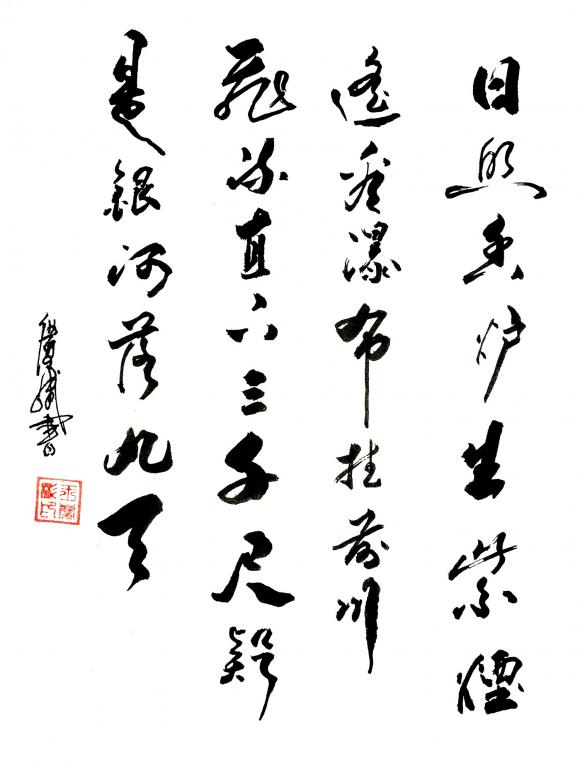 日照香炉生紫煙
遙看瀑布挂前川
飛流直下三千尺疑
是銀河落九天